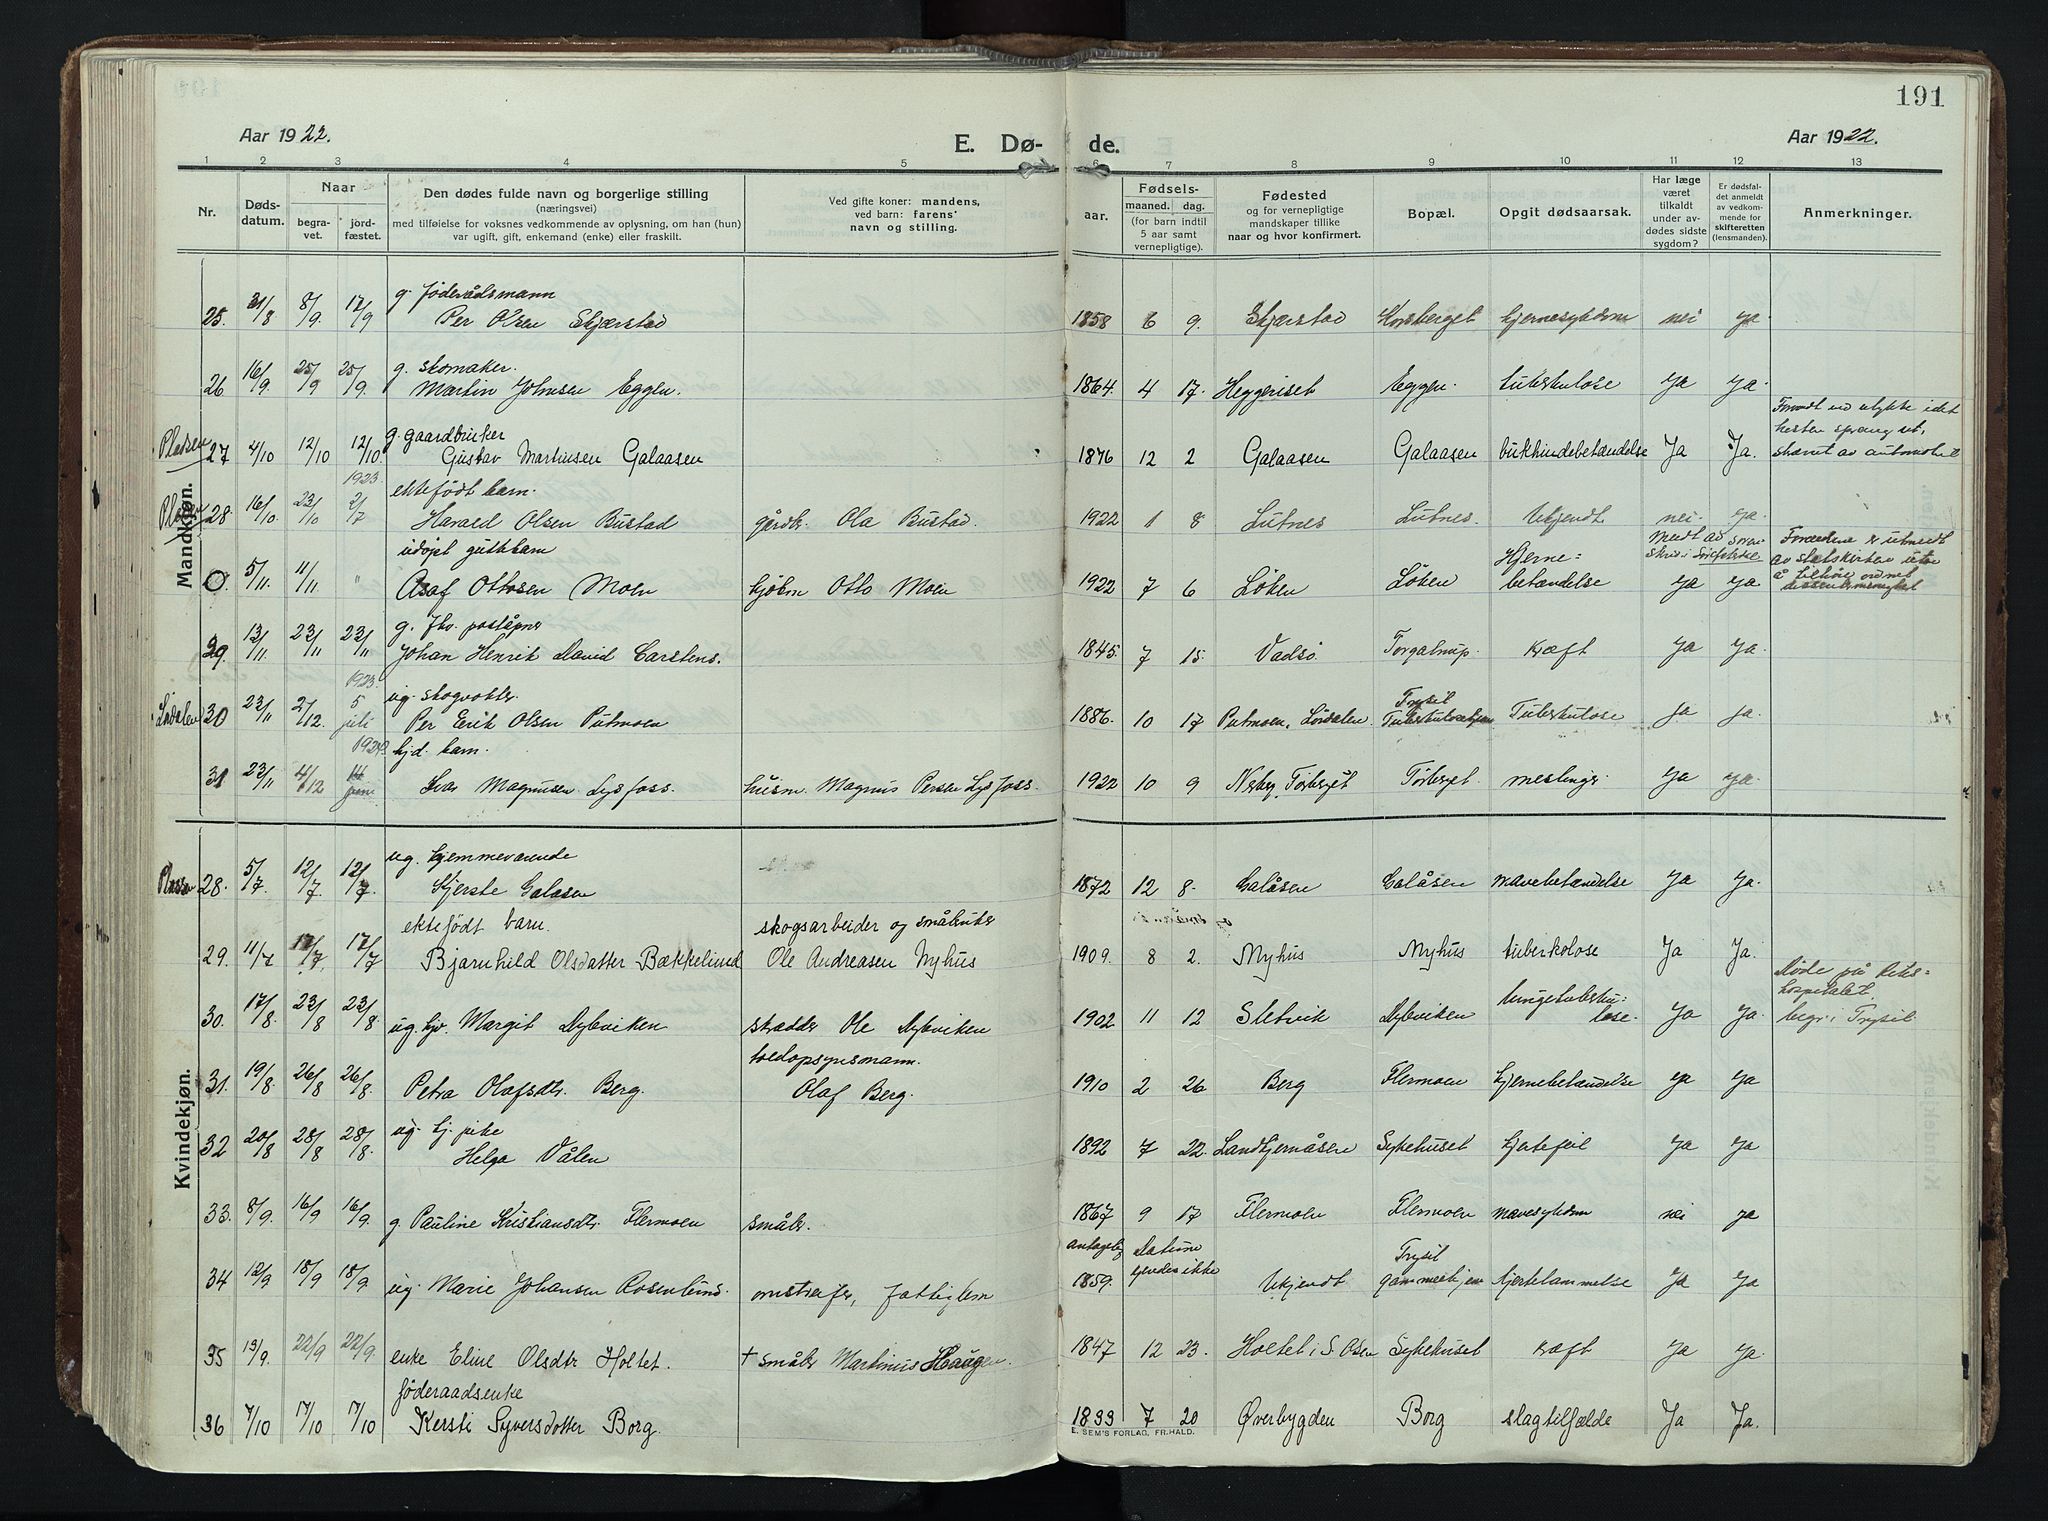 191
Aar 1922.
E. Dø-
de.
Aar 1922.
1 2 3 4 5 6 7 8 9 10 11 12 13
Nr.
Døds-
datum.
Naar
begra-
vet.
jord-
fæstet.
Den dødes fulde navn og borgerlige stilling
(næringsvei)
med tilføielse for voksnes vedkommende av oplysning, om han (hun)
var ugift, gift, enkemand (enke) eller fraskilt.
Ved gifte koner: mandens,
ved barn: farens'
navn og stilling.
Fødsels-
aar.
maaned. dag.
(for barn indtil
5 aar samt
vernepligtige).
Fødested
og for vernepligtige
mandskaper tillike
naar og hvor konfirmert.
Bopæl.
Opgit dødsaarsak.
Har læge
været
tilkaldt
under av-
dødes sidste
sygdom?
Er dødsfal-
det anmeldt
av vedkom-
mende for
skifteretten
(lensmanden).
Anmerkninger.
Mandkjøn.
g. føderådsmann
25. 31/8 8/9. 12/9 Per Olsen Skjærstad 1858 6 9. Skjærstad Korsberget hjernesykdom nei ja
g. skomaker.
26 16/9. 25/9 25/9. Martin Johnsen Eggen. 1864. 4 17. Heggeriset Eggen. tuberkulose ja ja.
Plassen g. gaardbruker
27 4/10 12/10 12/10. Gustav Martinsen Galaasen 1876 12 2 Galaasen Galaasen bukhindebetændelse Ja Ja.
hesten sprang ut,
skræmt av automobil
1923. ektefødt barn.
28. 16/10. 23/10 2/7 Harald Olsen Bustad gårdbr. Ola Bustad. 1922 1 8 Lutnes Lutnes. Ukjendt nei ja.
udøpt guttebarn
0 5/11. 11/11 " Asaf Ottosen Moen Otto Moen 1922 7 6 Løken Løken Hjerne=
betændelse ja ja
Forældrene er utmeldt
av statskirken
g. fhv. poståpner
29. 13/11. 23/11 23/11 Johan Henrik David Carstens. 1845. 7 15. Vadsø. kræft ja ja.
1923. ug. skogvokter.
30 23/11 2/12. 5 juli Per Erik Olsen Putmoen 1886. 10 17 Putmoen, Lørdalen Trysil
Tuberkulosehjem Tuberkulose ja ja.
barn.
31 23/11 4/12 14 juni Magnusen Lysfoss. husm. Magnus Persen Lysfoss. 1922 10 9 Nerby, Tørberget Tørberget. meslinger. ja ja.
Kvindekjøn.
ug. hjemmeværende
28. 5/7. 12/7 12/7. Kjerste Galåsen 1872 12 8. Galåsen Galåsen mavebetændelse ja ja.
ektefødt barn. skogsarbeider og småbruker
29. 11/7 17/7. 17/7 Bjarnhild Olsdatter Bækkelund Ole Andreasen Nyhus 1909. 8 2. Nyhus Nyhus tuberkolose Ja Ja.
30. 17/8. 23/8 23/8. ug. hjv. Margit Dybviken Ole Dybviken 1902 11 12 Sletvik Dybviken lungetuberku=
lose. ja ja.
Døde på Riks=
hospitalet.
begr. i Trysil
tredopsynsmann.
31. 19/8. 26/8 26/8. Petra Olafsdtr. Berg. Olaf Berg. 1910 2 26 Berg Flermoen hjernebetændelse ja ja
ug. hj. pike
32 20/8 28/8 28/8. Helga Vålen 1892 7 22. Landhjernåsen Sykehuset hjertefeil ja ja
33. 8/9. 16/9 16/9. g. Pauline Kristiansdtr. Flermoen småbr. 1867 9 17 Flermoen Flermoen mavesykdom nei ja
34 12/9 18/9 18/9 ug. Marie Johansen Rosenlund. omstreifer, fattiglem antagelig
1859. Datum
kjendes ikke Ukjendt Trysil
gammelhjem hjertelammelse ja ja
35 13/9. 22/9 22/9. enke Eline Olsdtr Holtet. + småbr Martinus Haugen. 1847 12 23. Holtet i S. Osen Sykehuset kræft ja ja.
føderaadsenke
36 7/10 17/10 17/10 Kersti Syversdotter Borg. 1833 7 20 Øverbygden Borg slagtilfælde Ja Ja.
E. SEM'S FORLAG, FR.HALD.